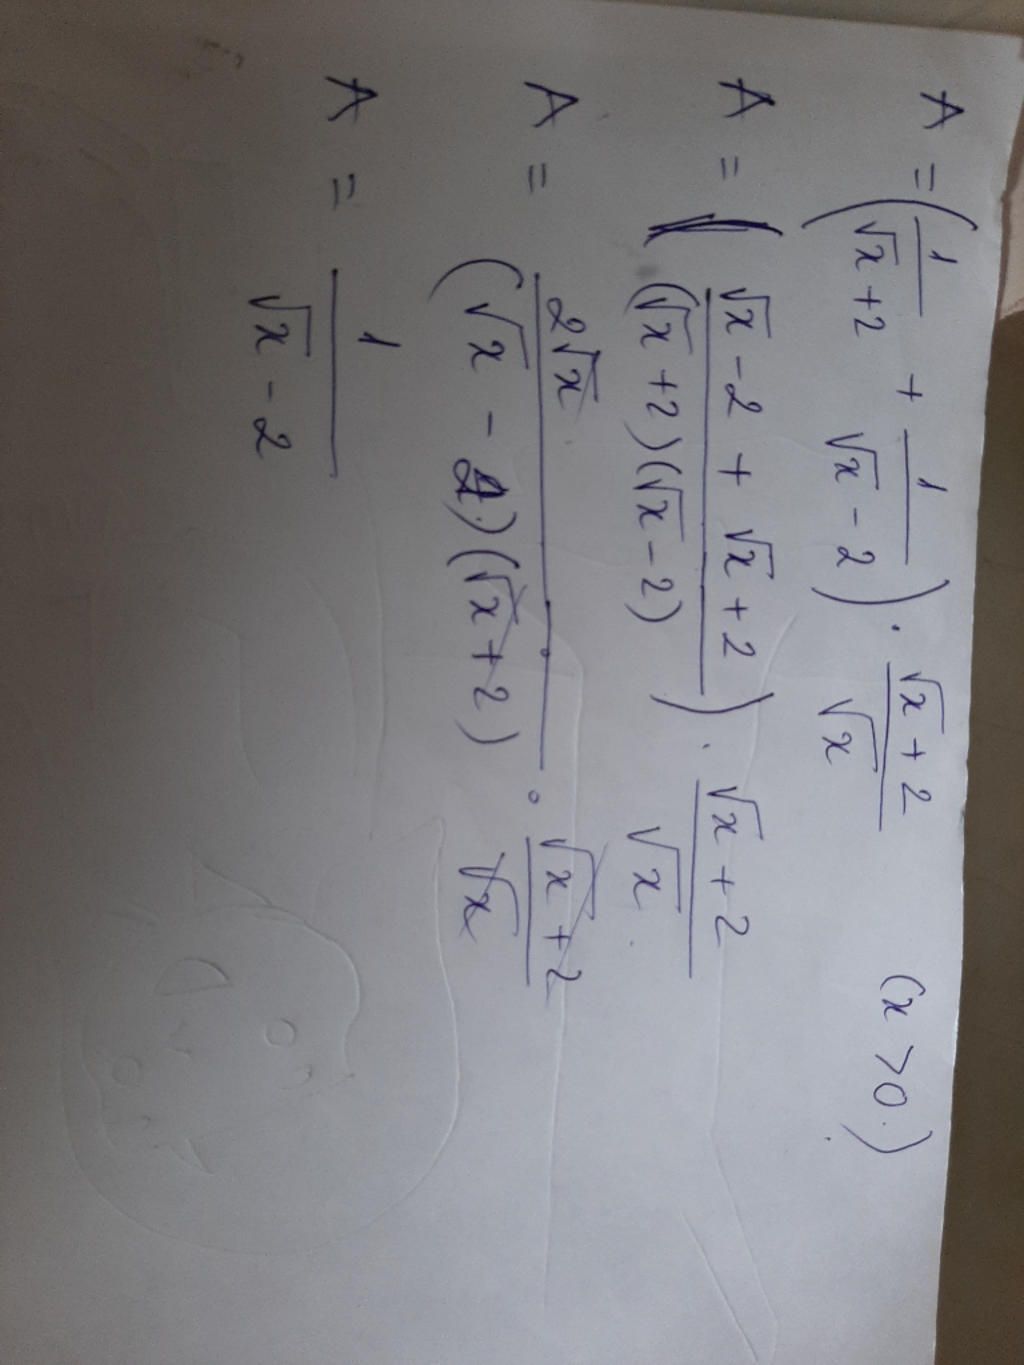 A = (1/(√x+2) + 1/(√x-2)) · (√x+2)/√x (x > 0)
A = (√x-2 + √x+2)/((√x+2)(√x-2))) · (√x+2)/√x
A = 2√x/((√x - 2)(√x+2)) · (√x+2)/√x
A = 1/(√x-2)